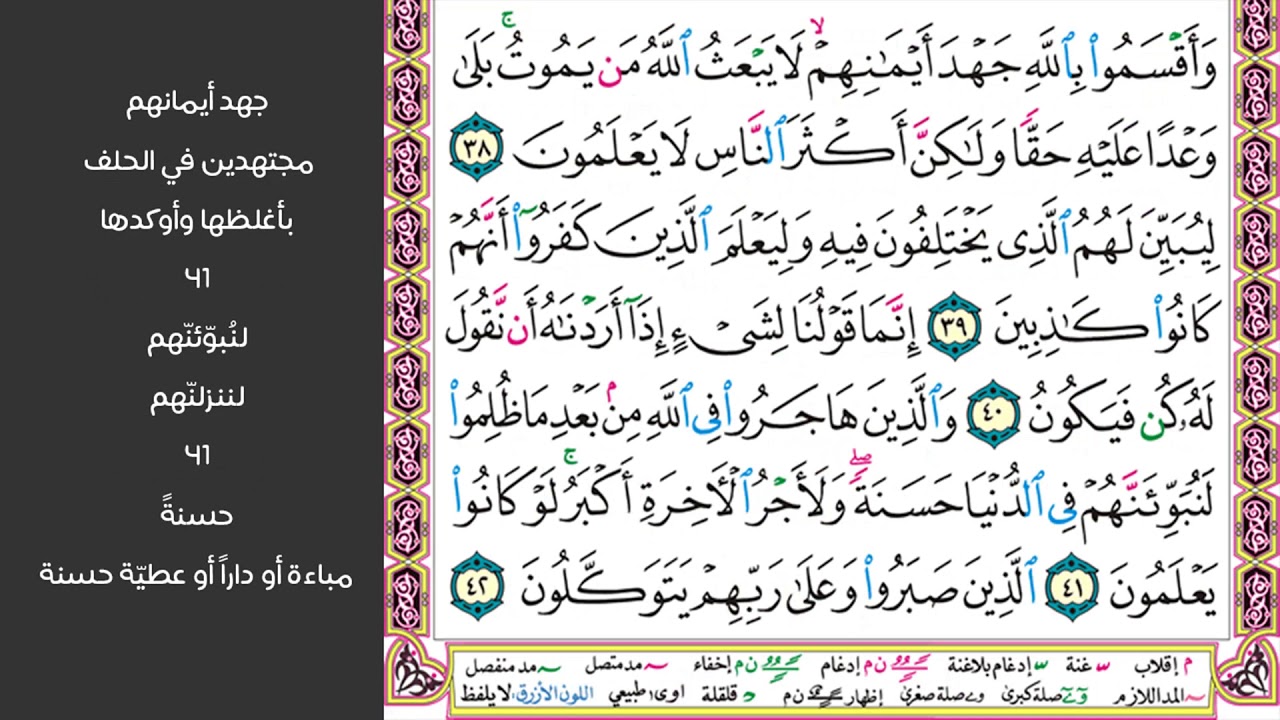 وَأَقْسَمُوا۟ بِٱللَّهِ جَهْدَ أَيْمَـٰنِهِمْ ۙ لَا يَبْعَثُ ٱللَّهُ مَن يَمُوتُ ۚ بَلَىٰ
وَعْدًا عَلَيْهِ حَقًّا وَلَـٰكِنَّ أَكْثَرَ ٱلنَّاسِ لَا يَعْلَمُونَ ٣٨
لِيُبَيِّنَ لَهُمُ ٱلَّذِى يَخْتَلِفُونَ فِيهِ وَلِيَعْلَمَ ٱلَّذِينَ كَفَرُوٓا۟ أَنَّهُمْ
كَانُوا۟ كَـٰذِبِينَ ٣٩ إِنَّمَا قَوْلُنَا لِشَىْءٍ إِذَآ أَرَدْنَـٰهُ أَن نَّقُولَ
لَهُۥ كُن فَيَكُونُ ٤٠ وَٱلَّذِينَ هَاجَرُوا۟ فِى ٱللَّهِ مِنۢ بَعْدِ مَا ظُلِمُوا۟
لَنُبَوِّئَنَّهُمْ فِى ٱلدُّنْيَا حَسَنَةً ۖ وَلَأَجْرُ ٱلْـَٔاخِرَةِ أَكْبَرُ ۚ لَوْ كَانُوا۟
يَعْلَمُونَ ٤١ ٱلَّذِينَ صَبَرُوا۟ وَعَلَىٰ رَبِّهِمْ يَتَوَكَّلُونَ ٤٢
م إقلاب س غنة س إدغام بلاغنة ن م إدغام ن م إخفاء مد متصل مد منفصل
المد اللازم صلة كبرى صلة صغرى إظهار ن م قلقلة اوى١ طبيعي اللون الأزرق: لا يلفظ
جهد أيمانهم
مجتهدين في الحلف
بأغلظها وأوكدها
٤١
لنُبوّئنّهم
لننزلنّهم
٤١
حسنةً
مباءة أو داراً أو عطيّة حسنة